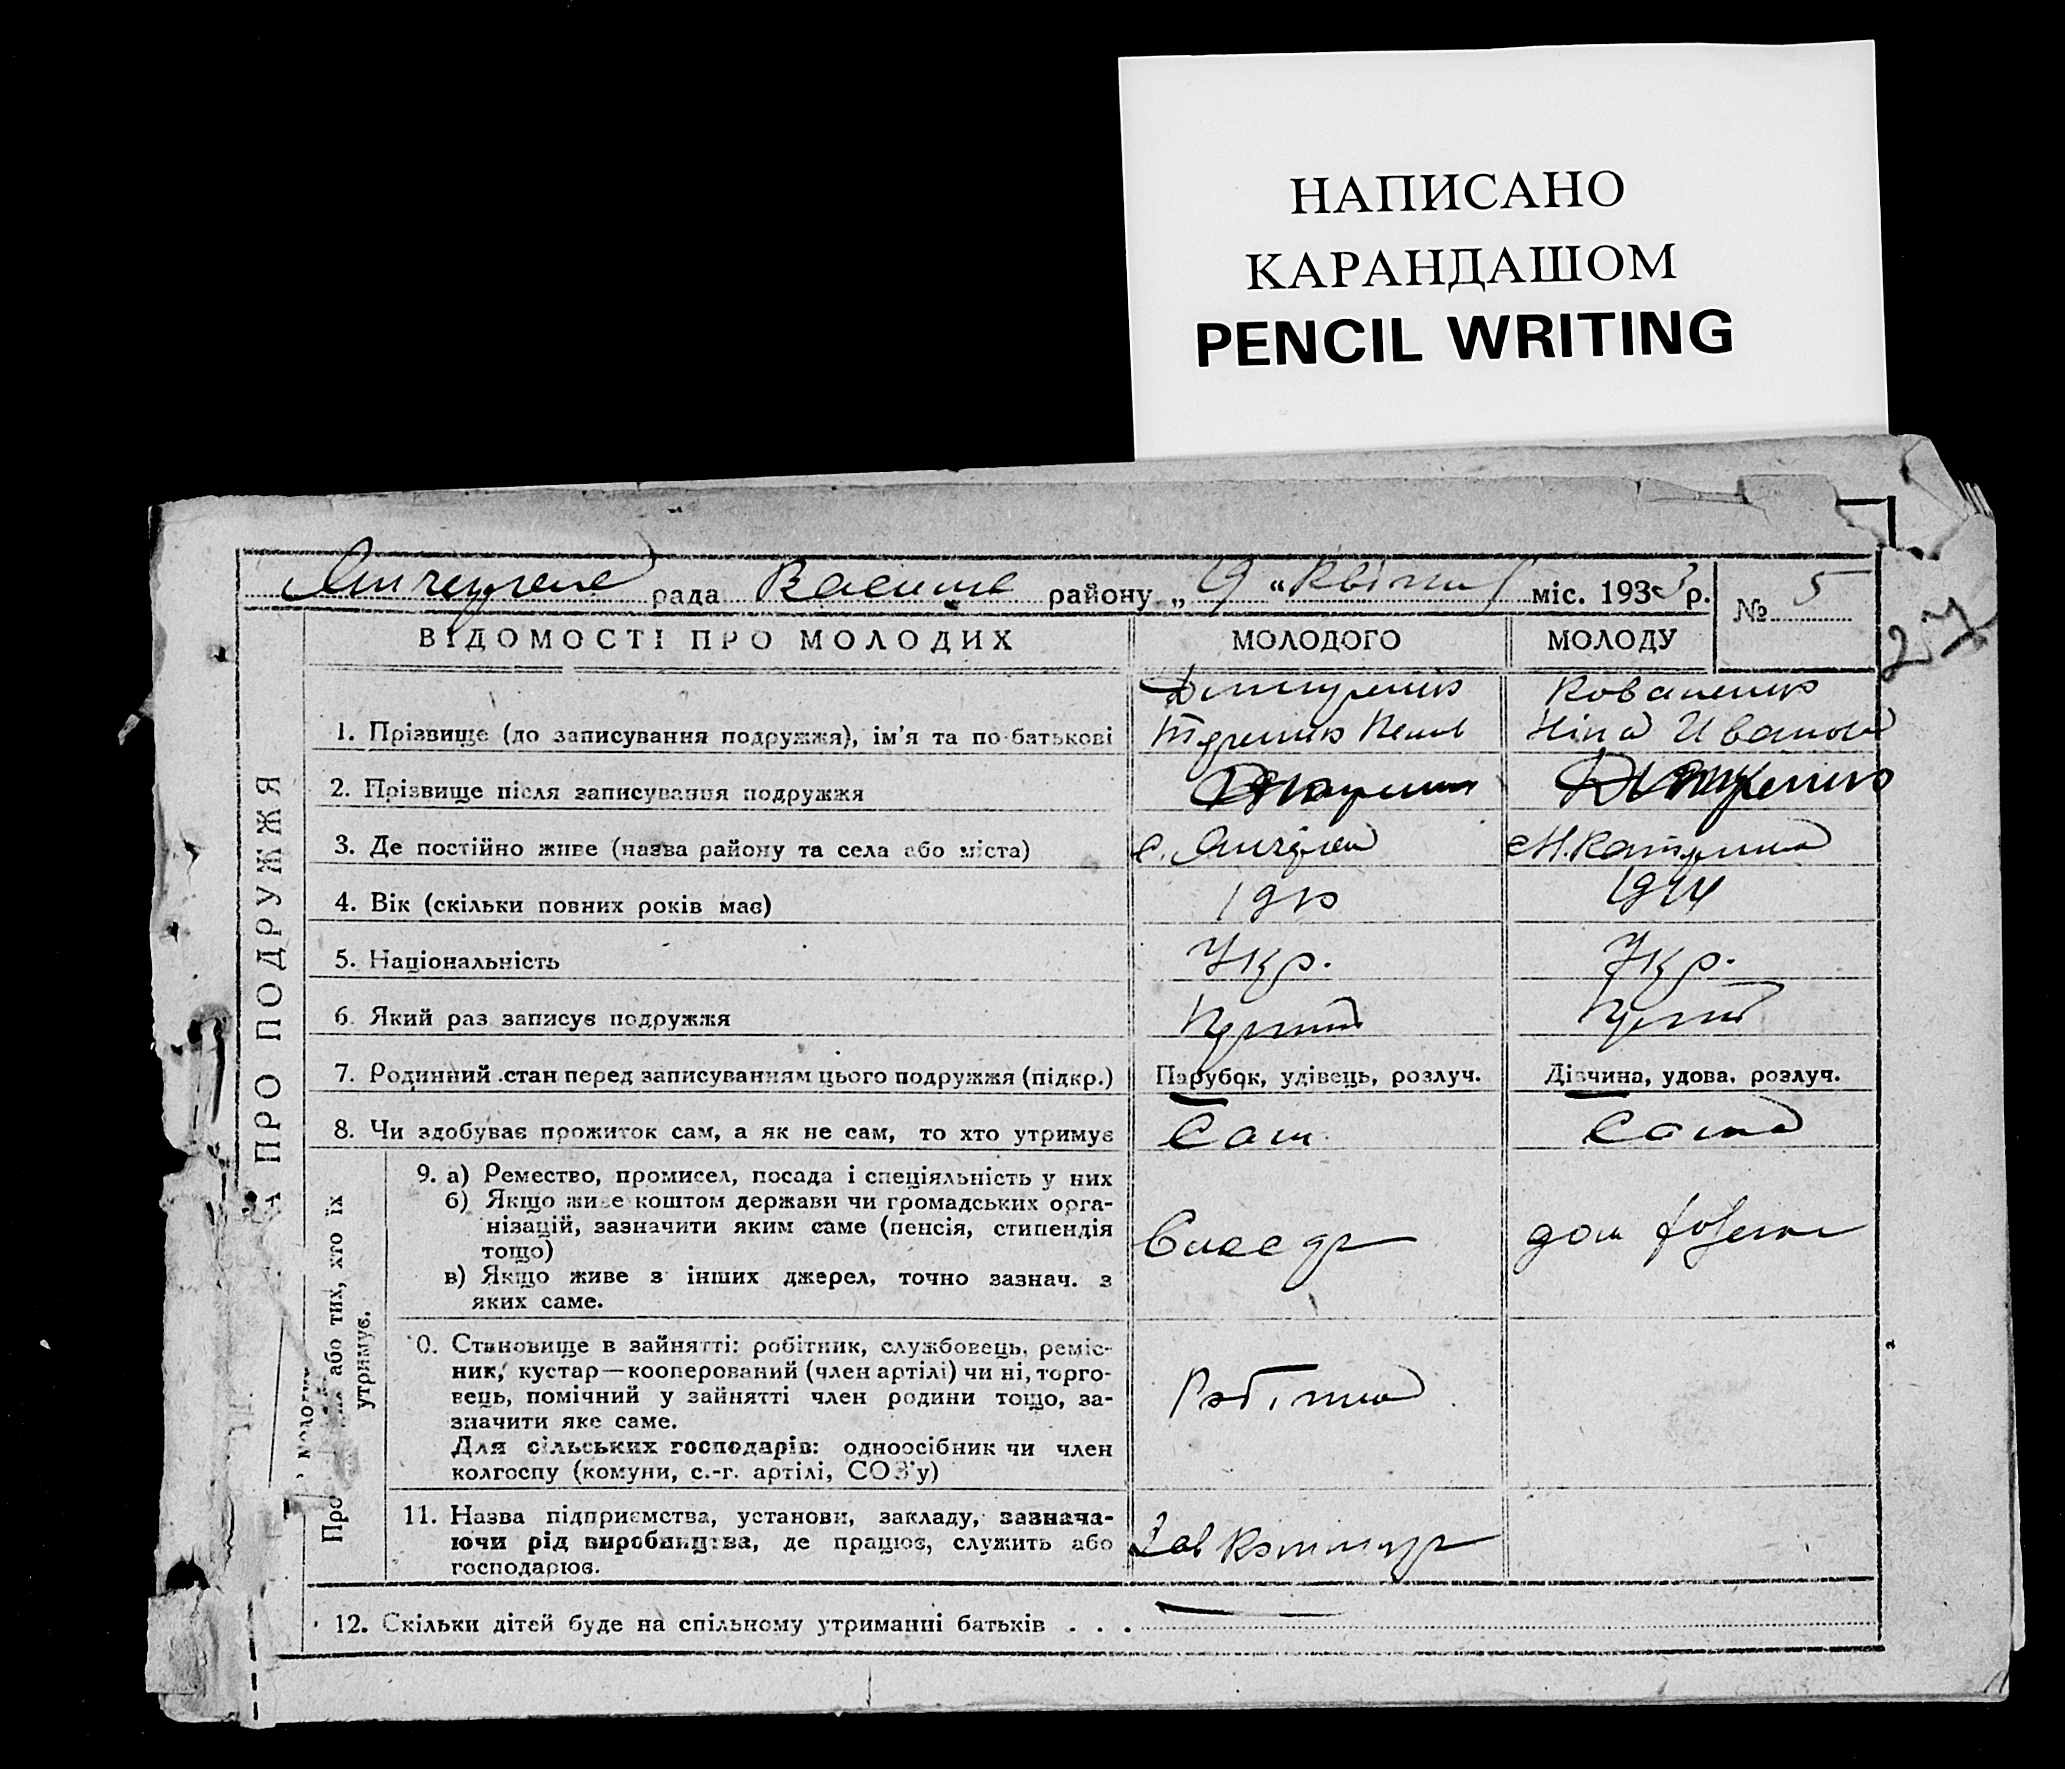 НАПИСАНО
КАРАНДАШОМ
PENCIL WRITING
рада району „ 9 “ міс. 1933 р.
№ 5
27
ВІДОМОСТІ ПРО МОЛОДИХ
МОЛОДОГО
МОЛОДУ
А ПРО ПОДРУЖЖЯ
1. Прізвище (до записування подружжя), ім'я та по-батькові
Коваленко
Ніна Иванов
2. Прізвище після записування подружжя
3. Де постійно живе (назва району та села або міста)
с.
4. Вік (скільки повних років має)
1910
1914
5. Національність
Укр.
Укр.
6. Який раз записує подружжя
7. Родинний стан перед записуванням цього подружжя (підкр.)
Парубок, удівець, розлуч.
Дівчина, удова, розлуч.
8. Чи здобуває прожиток сам, а як не сам, то хто утримує
Сам
Сама
або тих, хто їх
утримує.
9. а) Ремество, промисел, посада і спеціяльність у них
б) Якщо живе коштом держави чи громадських орга-
нізацій, зазначити яким саме (пенсія, стипендія
тощо)
в) Якщо живе з інших джерел, точно зазнач. з
яких саме.
Слесар
дом
0. Становище в зайнятті: робітник, службовець, реміс-
ник, кустар—кооперований (член артілі) чи ні, торго-
вець, помічний у зайнятті член родини тощо, за-
значити яке саме.
Для сільських господарів: одноосібник чи член
колгоспу (комуни, с.-г. артілі, СОЗ'у)
Робітник
11. Назва підприємства, установи, закладу, зазнача-
ючи рід виробництва, де працює, служить або
господарює.
Зав
12. Скільки дітей буде на спільному утриманні батьків . . .